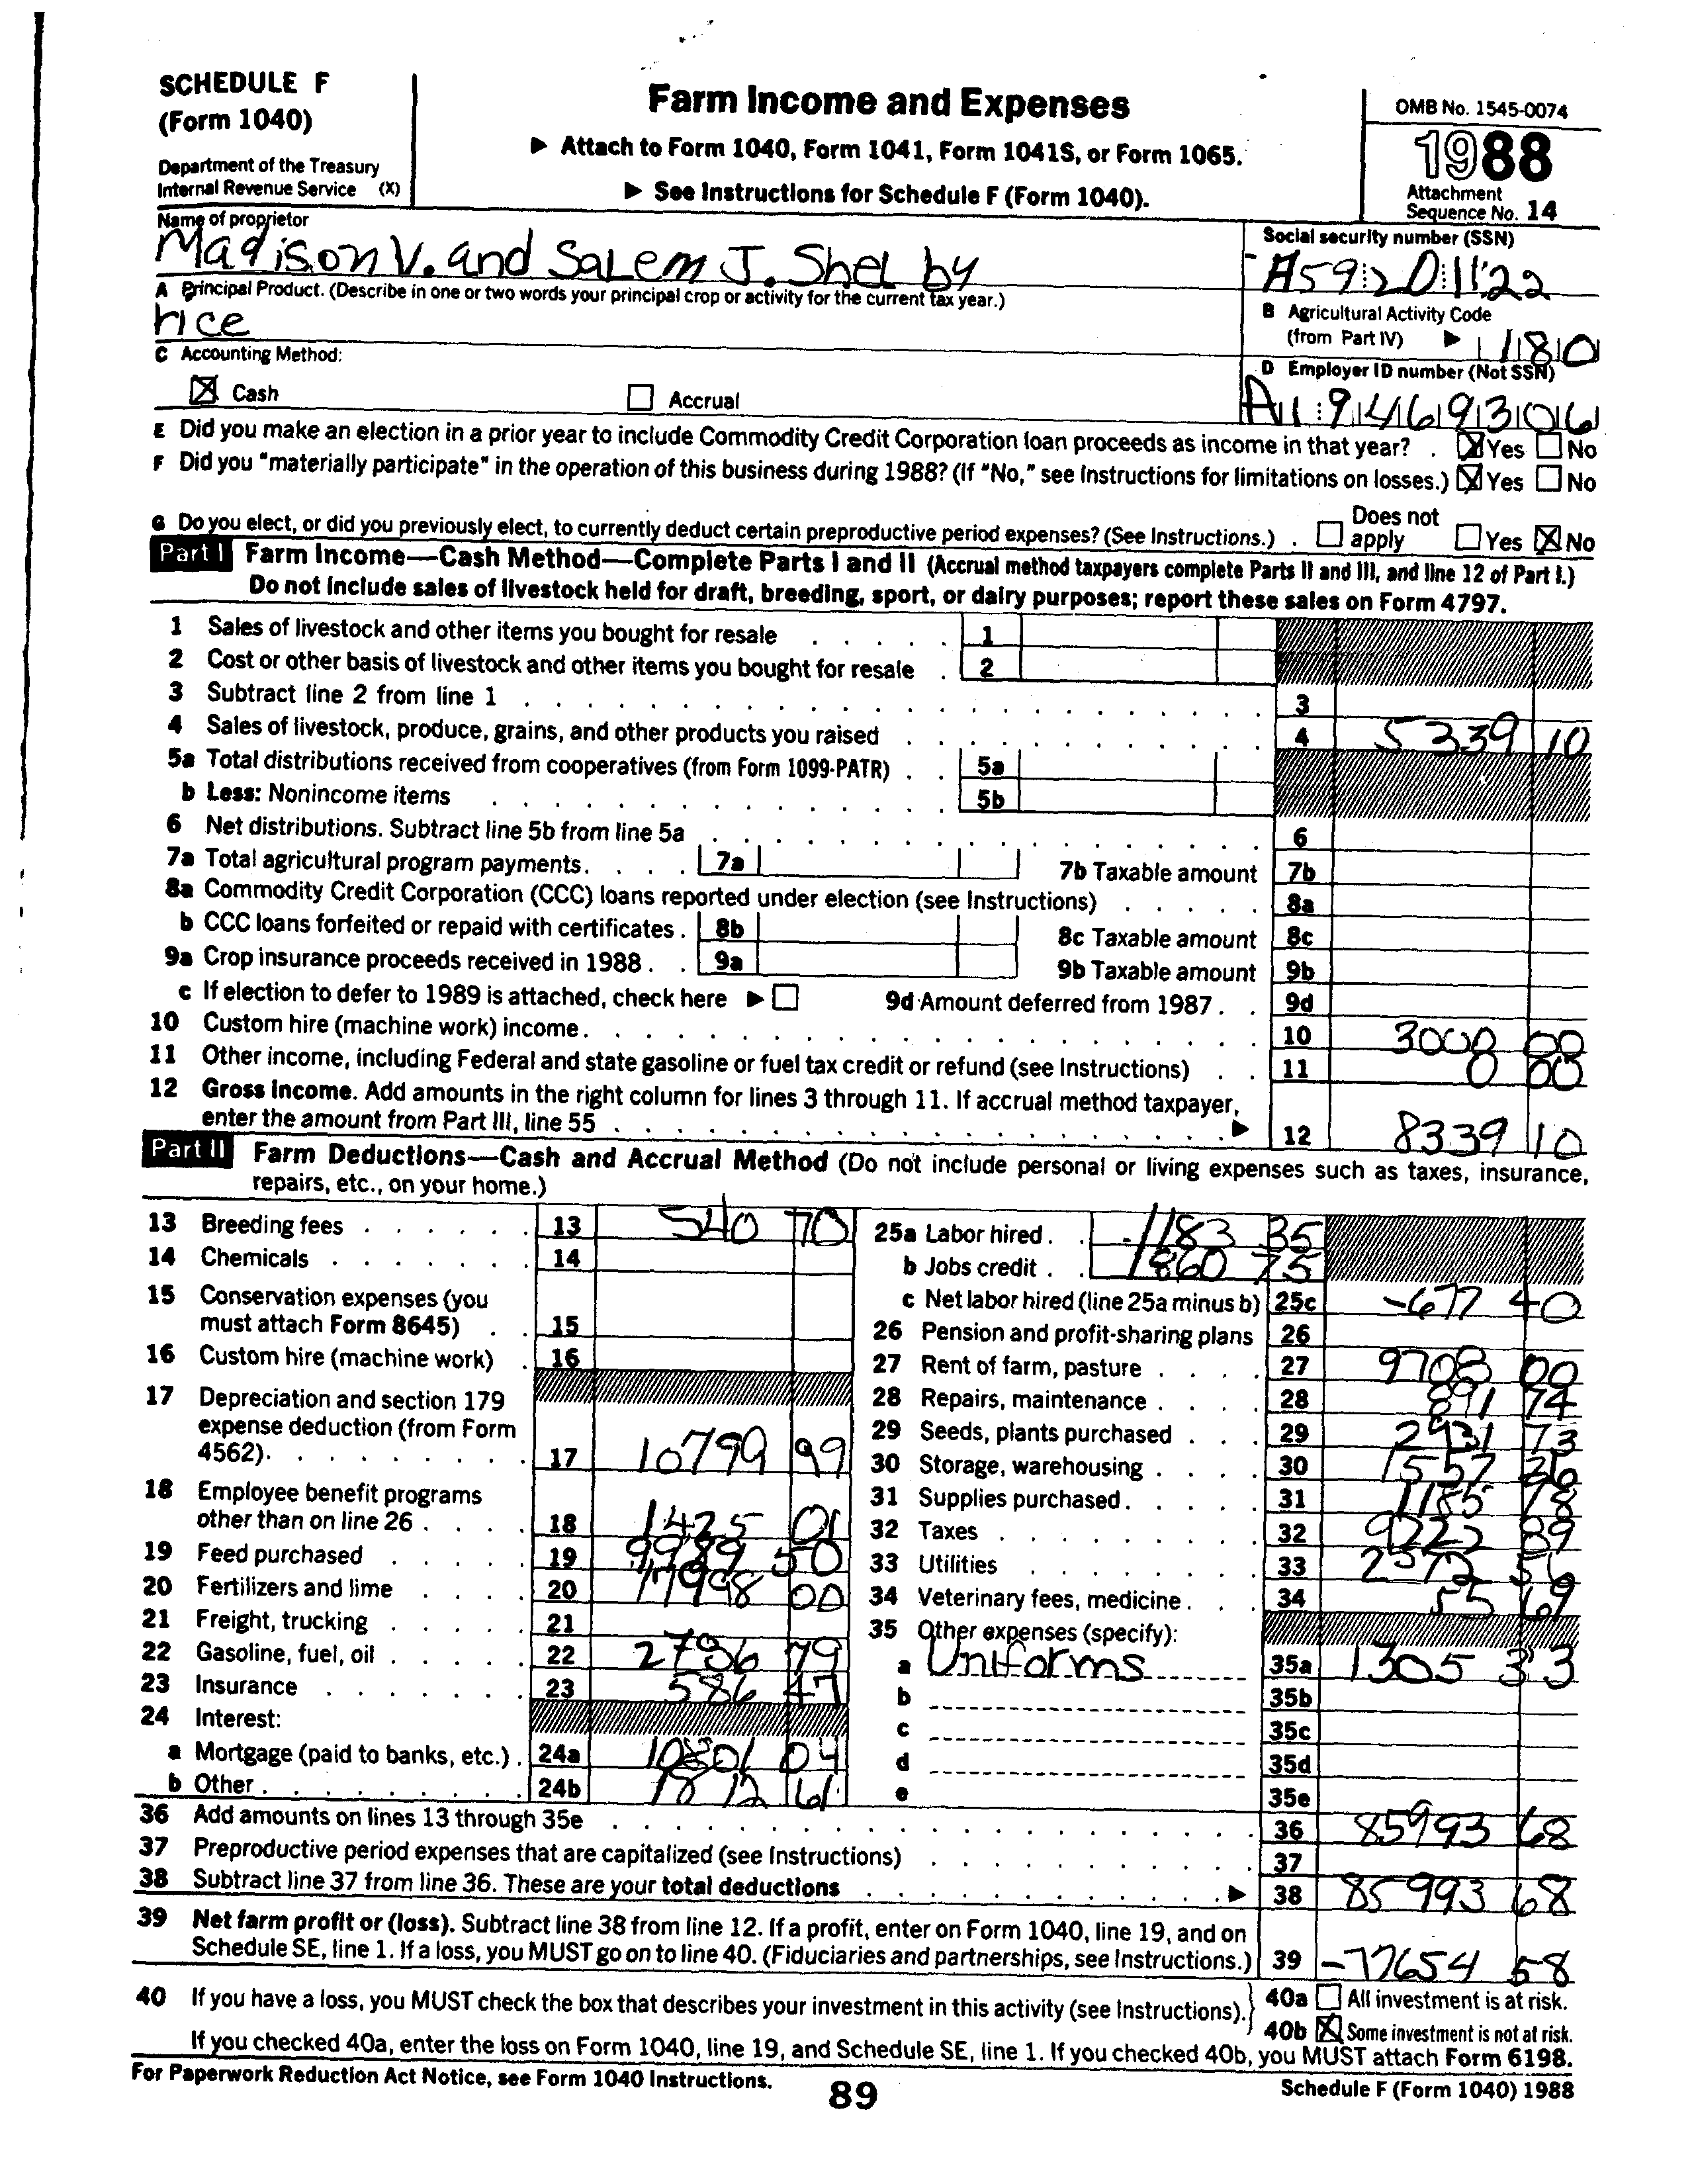 SCHEDULE F
(Form 1040)
Department of the Treasury
Internal Revenue Service (X)
Farm Income and Expenses
▶ Attach to Form 1040, Form 1041, Form 1041S, or Form 1065.
▶ See Instructions for Schedule F (Form 1040).
OMB No. 1545-0074
1988
Attachment
Sequence No. 14
Name of proprietor
Madison V. and Salem J. Shelby
Social security number (SSN)
A59 20 1122
A Principal Product. (Describe in one or two words your principal crop or activity for the current tax year.)
rice
B Agricultural Activity Code
(from Part IV) ▶ 180
C Accounting Method:
☒ Cash ☐ Accrual
D Employer ID number (Not SSN)
A1 9469306
E Did you make an election in a prior year to include Commodity Credit Corporation loan proceeds as income in that year? . ☒ Yes ☐ No
F Did you "materially participate" in the operation of this business during 1988? (If "No," see Instructions for limitations on losses.) ☒ Yes ☐ No
G Do you elect, or did you previously elect, to currently deduct certain preproductive period expenses? (See Instructions.) . ☐ Does not apply ☐ Yes ☒ No
Part I Farm Income—Cash Method—Complete Parts I and II (Accrual method taxpayers complete Parts II and III, and line 12 of Part I.)
Do not include sales of livestock held for draft, breeding, sport, or dairy purposes; report these sales on Form 4797.
1 Sales of livestock and other items you bought for resale 1
2 Cost or other basis of livestock and other items you bought for resale 2
3 Subtract line 2 from line 1 3
4 Sales of livestock, produce, grains, and other products you raised 4 5339 10
5a Total distributions received from cooperatives (from Form 1099-PATR) 5a
b Less: Nonincome items 5b
6 Net distributions. Subtract line 5b from line 5a 6
7a Total agricultural program payments. 7a 7b Taxable amount 7b
8a Commodity Credit Corporation (CCC) loans reported under election (see Instructions) 8a
b CCC loans forfeited or repaid with certificates . 8b 8c Taxable amount 8c
9a Crop insurance proceeds received in 1988 . 9a 9b Taxable amount 9b
c If election to defer to 1989 is attached, check here ▶ ☐ 9d Amount deferred from 1987 . . 9d
10 Custom hire (machine work) income. 10 3000 00
11 Other income, including Federal and state gasoline or fuel tax credit or refund (see Instructions) 11 0 00
12 Gross Income. Add amounts in the right column for lines 3 through 11. If accrual method taxpayer,
enter the amount from Part III, line 55 ▶ 12 8339 10
Part II Farm Deductions—Cash and Accrual Method (Do not include personal or living expenses such as taxes, insurance,
repairs, etc., on your home.)
13 Breeding fees 13 540 70
14 Chemicals 14
15 Conservation expenses (you
must attach Form 8645) 15
16 Custom hire (machine work) 16
17 Depreciation and section 179
expense deduction (from Form
4562). 17 10799 99
18 Employee benefit programs
other than on line 26 . 18 1425 01
19 Feed purchased 19 9989 50
20 Fertilizers and lime 20 17998 00
21 Freight, trucking 21
22 Gasoline, fuel, oil 22 2736 79
23 Insurance 23 586 47
24 Interest:
a Mortgage (paid to banks, etc.) . 24a 10801 04
b Other . 24b 1812 61
25a Labor hired . 1183 35
b Jobs credit . 1860 75
c Net labor hired (line 25a minus b) 25c -677 40
26 Pension and profit-sharing plans 26
27 Rent of farm, pasture 27 9708 00
28 Repairs, maintenance 28 891 74
29 Seeds, plants purchased 29 2931 73
30 Storage, warehousing 30 1557 36
31 Supplies purchased . 31 1185 78
32 Taxes 32 89
33 Utilities 33 2572 56
34 Veterinary fees, medicine . 34 55 69
35 Other expenses (specify):
a Uniforms 35a 1305 33
b 35b
c 35c
d 35d
e 35e
36 Add amounts on lines 13 through 35e 36 85993 68
37 Preproductive period expenses that are capitalized (see Instructions) 37
38 Subtract line 37 from line 36. These are your total deductions ▶ 38 85993 68
39 Net farm profit or (loss). Subtract line 38 from line 12. If a profit, enter on Form 1040, line 19, and on
Schedule SE, line 1. If a loss, you MUST go on to line 40. (Fiduciaries and partnerships, see Instructions.) 39 -77654 58
40 If you have a loss, you MUST check the box that describes your investment in this activity (see Instructions). 40a ☐ All investment is at risk.
40b ☒ Some investment is not at risk.
If you checked 40a, enter the loss on Form 1040, line 19, and Schedule SE, line 1. If you checked 40b, you MUST attach Form 6198.
For Paperwork Reduction Act Notice, see Form 1040 Instructions.
89
Schedule F (Form 1040) 1988